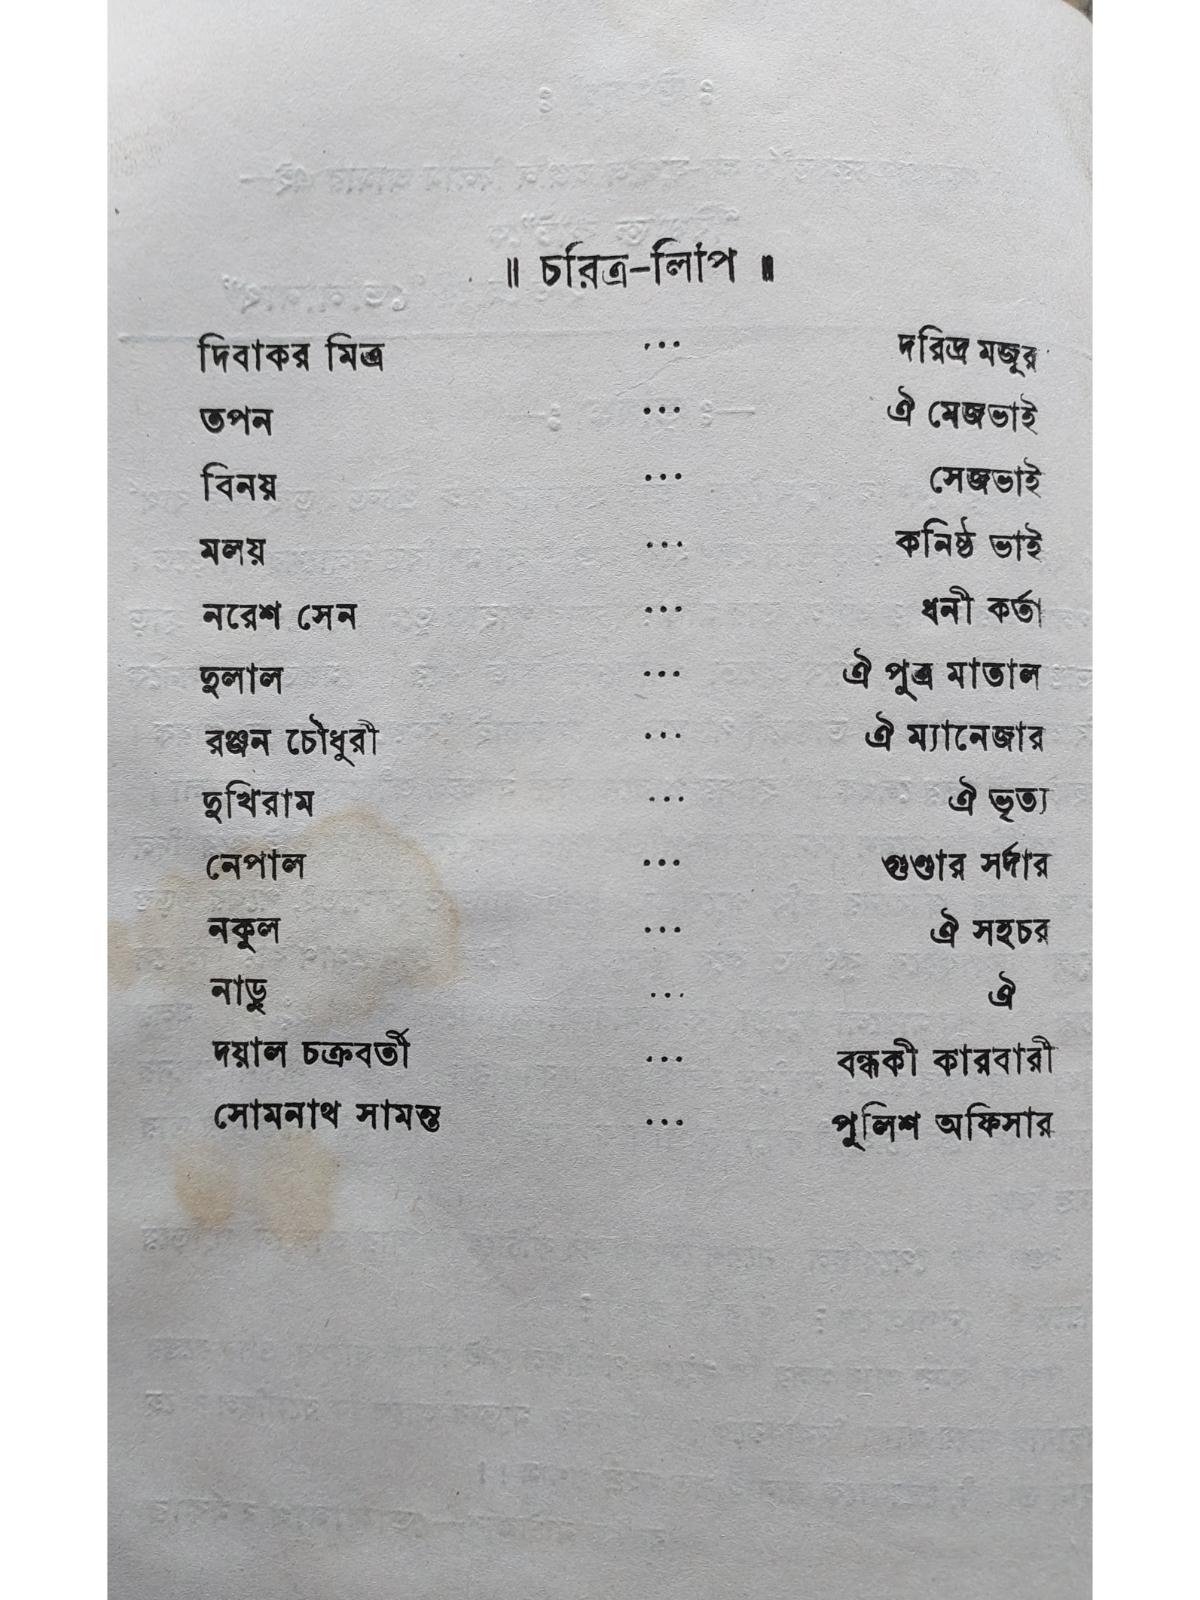 ॥ চরিত্র-লিপি ॥
দিবাকর মিত্র ... দরিদ্র মজুর
তপন ... ঐ মেজভাই
বিনয় ... সেজভাই
মলয় ... কনিষ্ঠ ভাই
নরেশ সেন ... ধনী কর্তা
দুলাল ... ঐ পুত্র মাতাল
রঞ্জন চৌধুরী ... ঐ ম্যানেজার
দুখিরাম ... ঐ ভৃত্য
নেপাল ... গুণ্ডার সর্দার
নকুল ... ঐ সহচর
নাড়ু ... ঐ
দয়াল চক্রবর্তী ... বন্ধকী কারবারী
সোমনাথ সামন্ত ... পুলিশ অফিসার